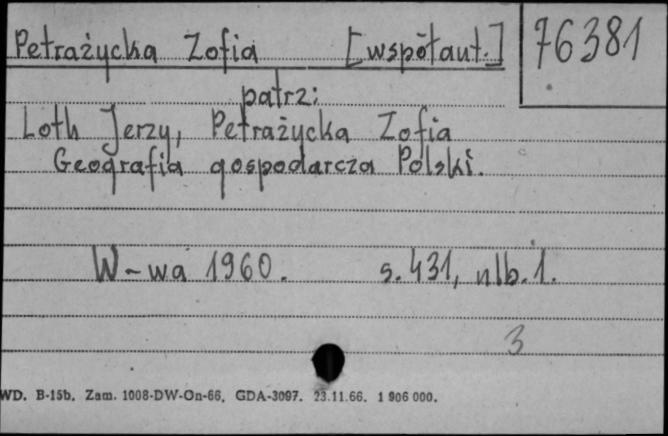 Petrażycka Zofia [współaut.] 76381
patrz:
Loth Jerzy, Petrażycka Zofia
Geografia gospodarcza Polski.
W-wa 1960. s. 431, nlb. 1.
3
WD. B-15b. Zam. 1008-DW-On-66. GDA-3097. 23.11.66. 1 906 000.